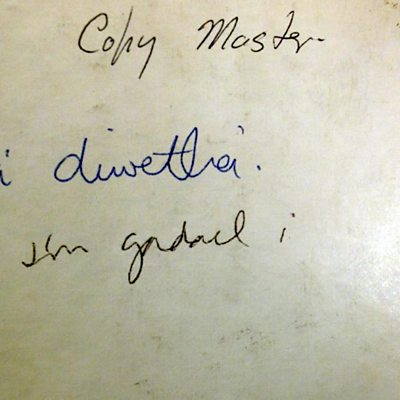 Copy Master.
i diwetha'.
gadael i